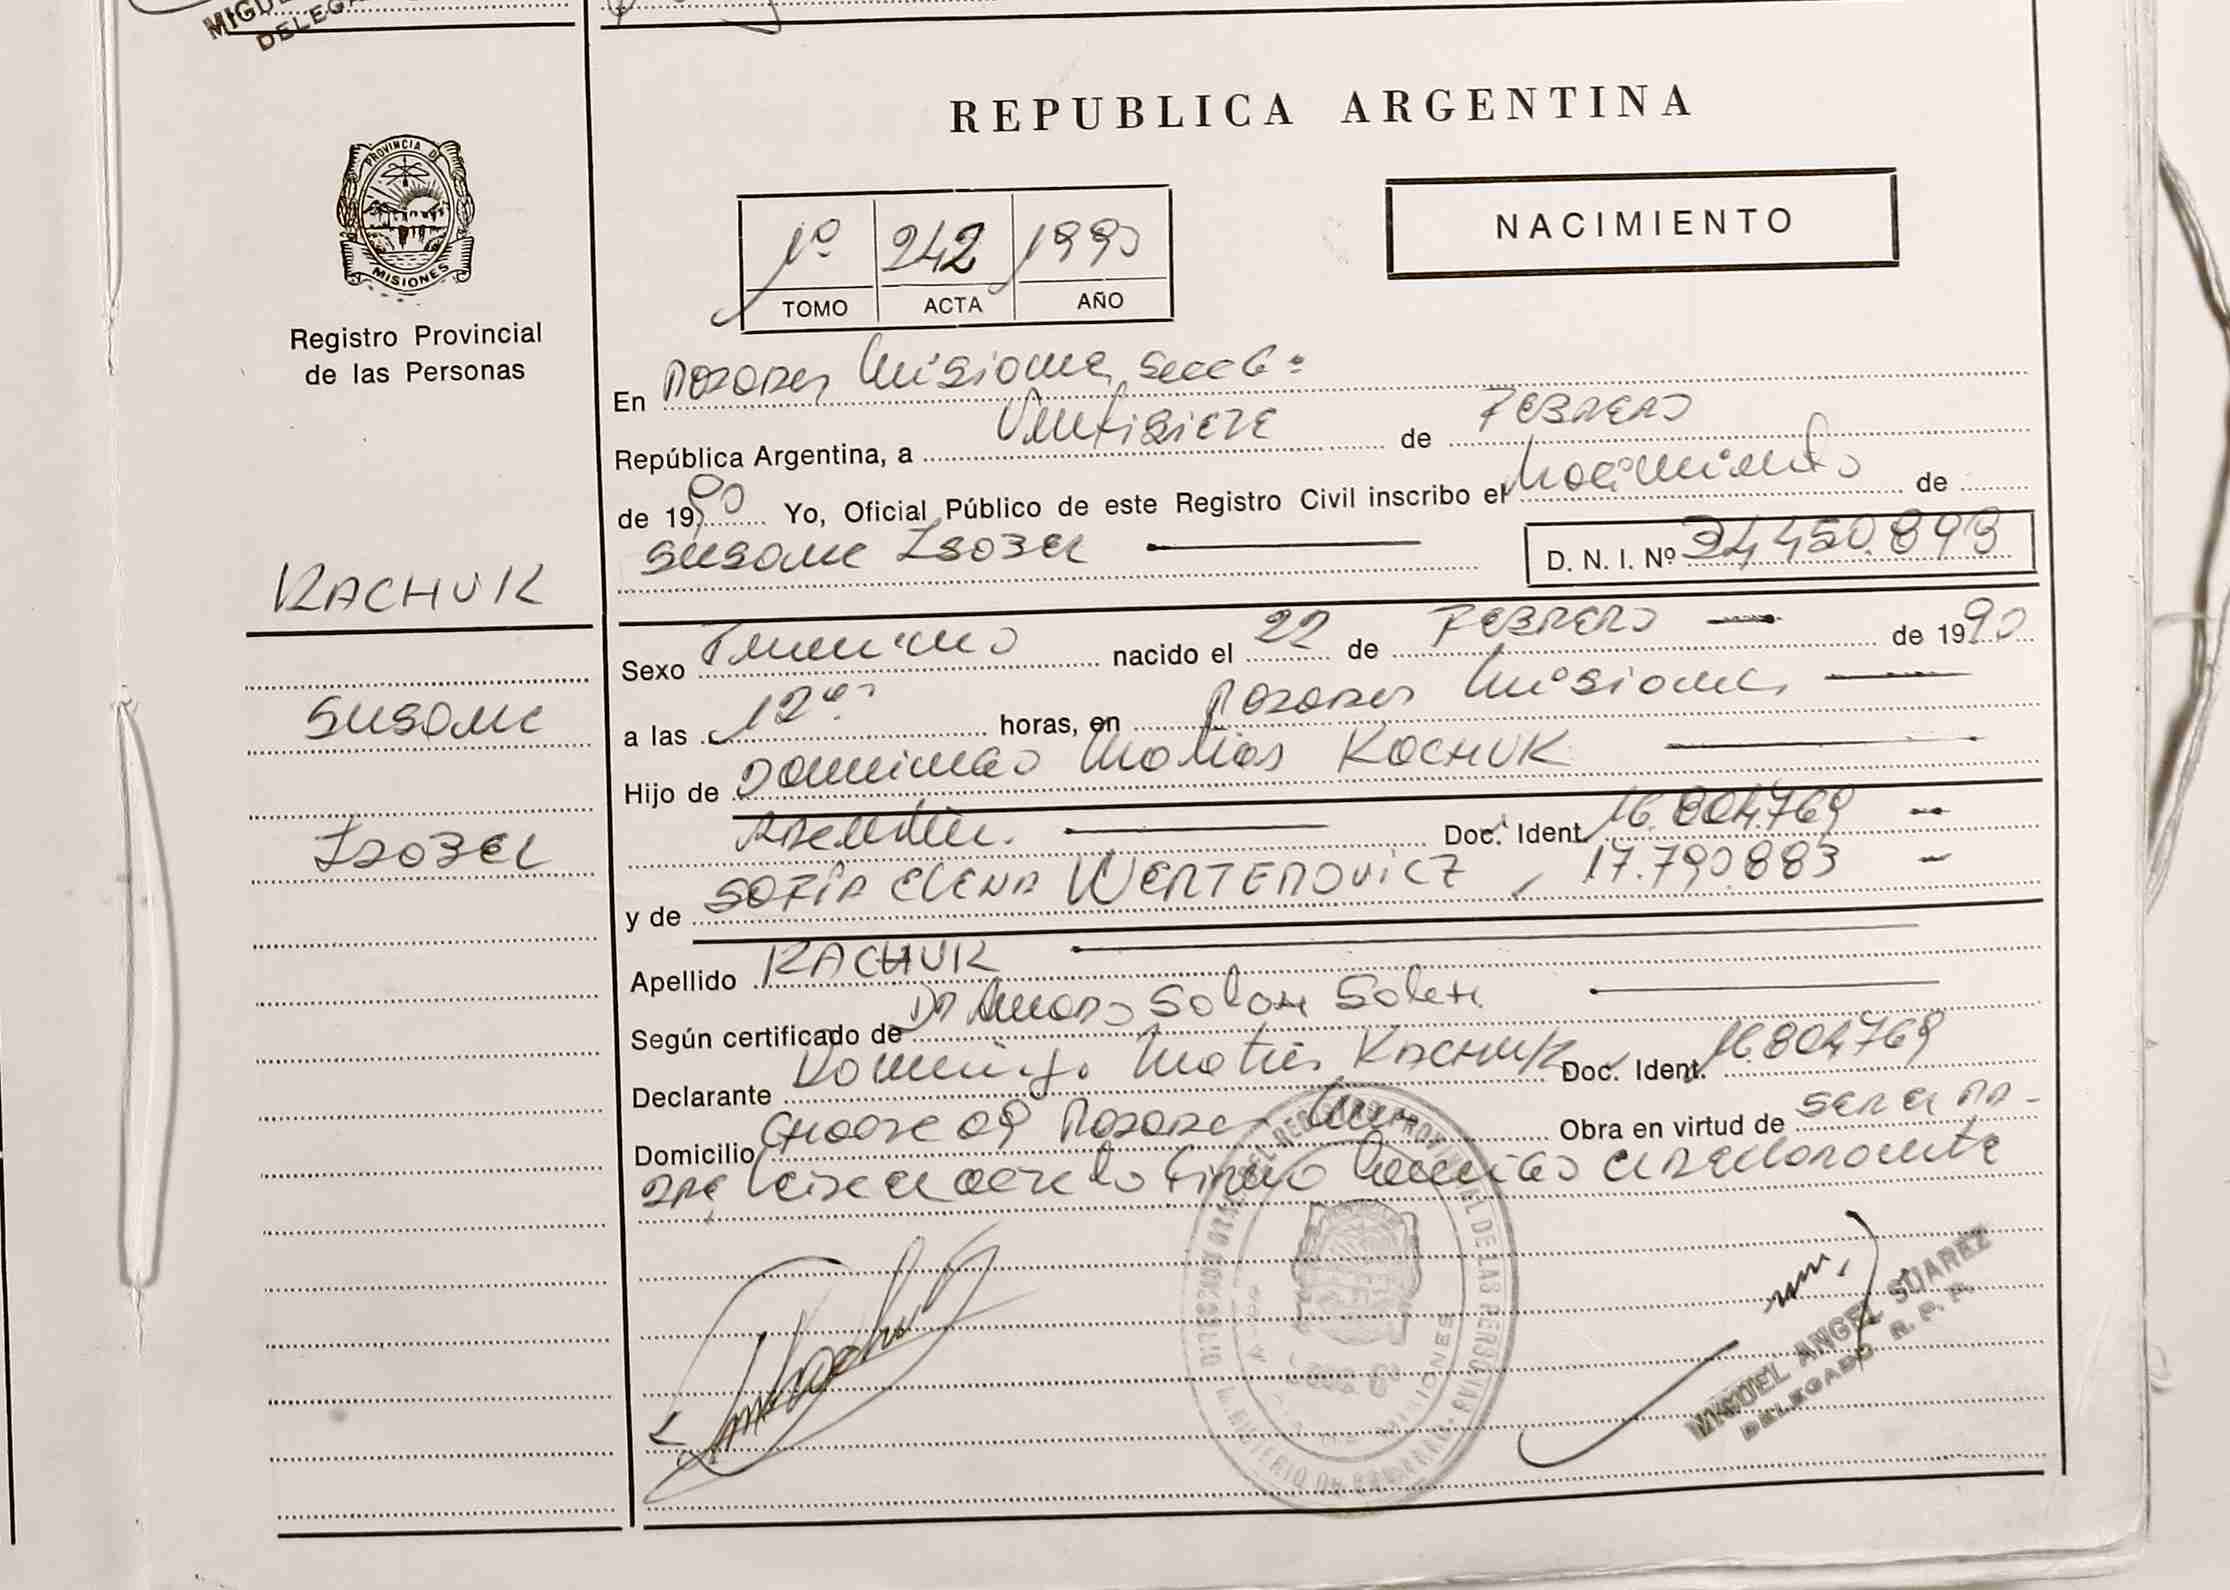 MIGUEL
DELEGA
REPUBLICA ARGENTINA
PROVINCIA DE
MISIONES
Registro Provincial
de las Personas
NACIMIENTO
1º 242 1990
TOMO ACTA AÑO
En Posadas Misiones Secc 6ª
República Argentina, a Veintisiete de FEBRERO
de 1990 Yo, Oficial Público de este Registro Civil inscribo el Nacimiento de
Susana Isabel D. N. I. Nº 34.450.893
KACHUK
Sexo Femenino nacido el 22 de FEBRERO de 1990
Susana
a las 12 horas, en Posadas Misiones
Hijo de Domingo Matias KACHUK
Isabel
Doc. Ident. 16.804.769
y de SOFÍA ELENA WERTEROVICZ, 17.790.883
Apellido KACHUK
Según certificado de Dr
Declarante Domingo Matias KACHUK Doc. Ident. 16.804.769
Domicilio 09 Posadas Obra en virtud de ser el pa-
dre Leída el acta la firma conmigo el declarante
MIGUEL ANGEL SUAREZ
DELEGADO R. P. P.